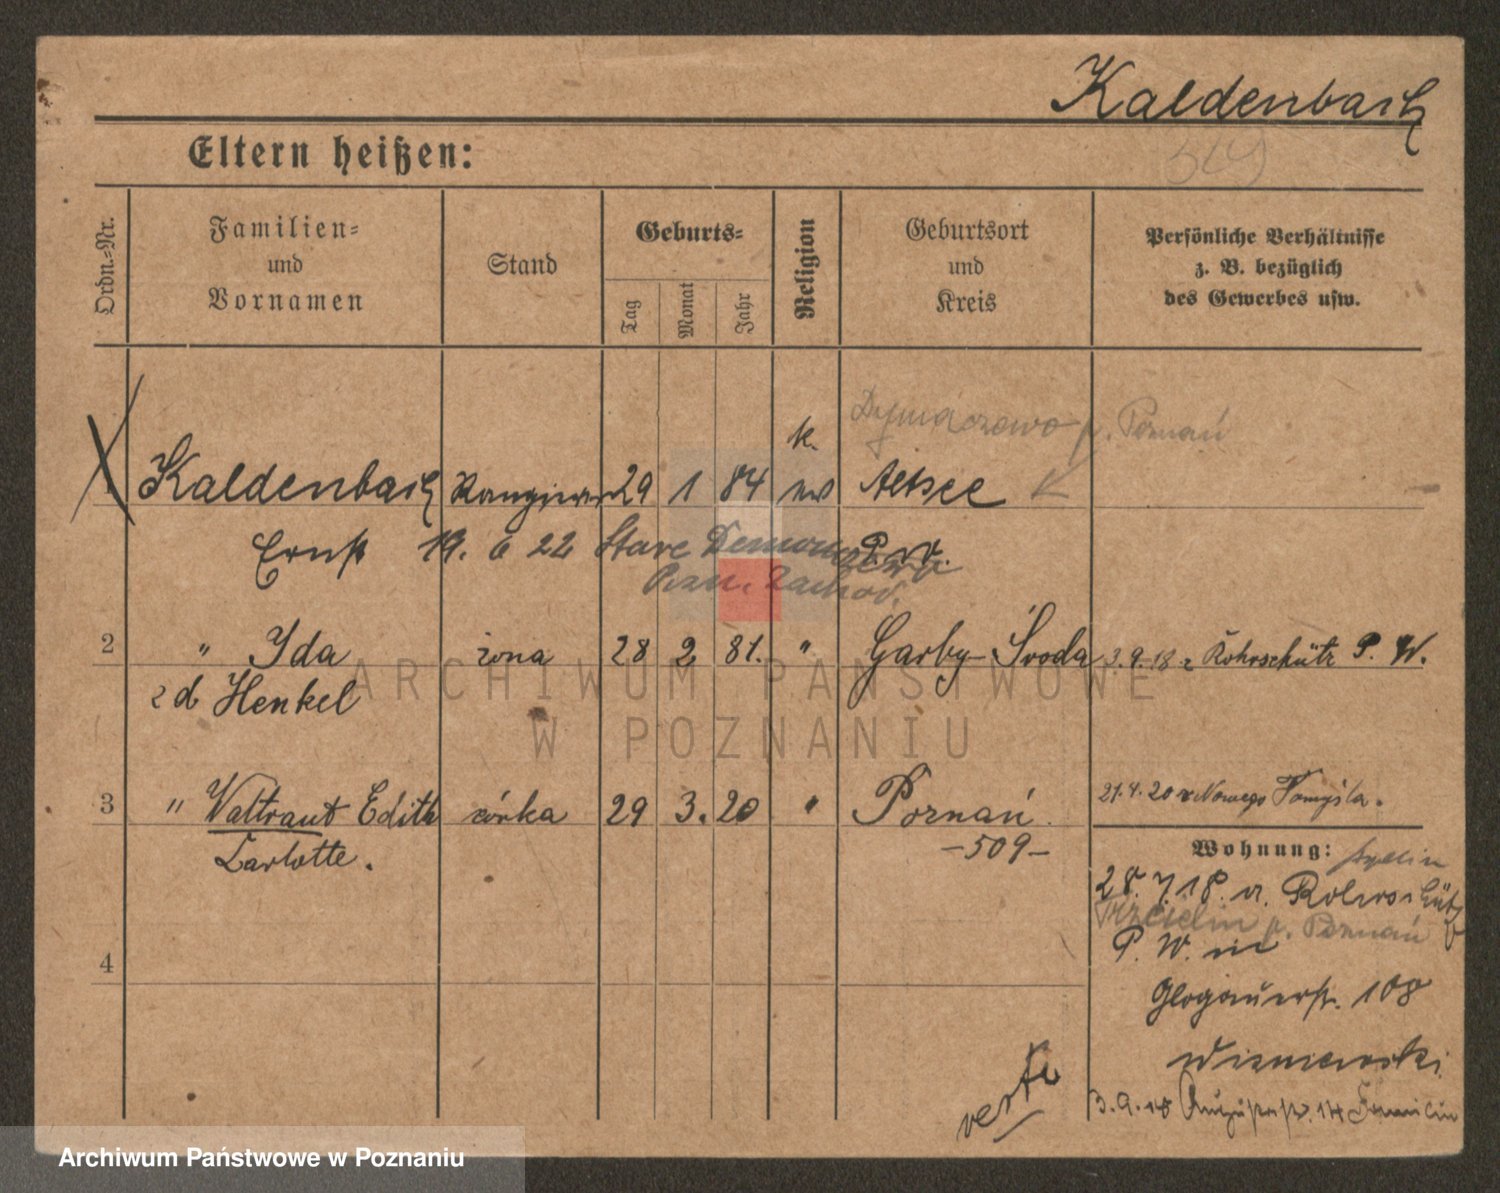 Kaldenbach
Eltern heißen:
Ordn.-Nr.
Familien-
und
Vornamen
Stand
Geburts-
Tag
Monat
Jahr
Religion
Geburtsort
und
Kreis
Persönliche Verhältnisse
z. B. bezüglich
des Gewerbes usw.
Dymaczewo p. Poznań
k.
1 Kaldenbach 29 1 84 Altsee
Ernst 19. 6 22 Stare P. W.
Pozn. Zachod.
2 " Ida żona 28 2 81. " Garby Środa 3.9.18 z Rohrschütz P. W.
z d Henkel
3 " Waltraut Edith córka 29 3. 20 " Poznań 21.4.20 z Nowego Tomyśla.
Carlotte.
-509-
Wohnung:
28.7.18. a. Rohrschütz
Trzcielin p. Poznań
P. W. in
4
Glogauerstr. 108
Wisniewski
3.9.18 Augustastr. 14
verte
ARCHIWUM PAŃSTWOWE
W POZNANIU
Archiwum Państwowe w Poznaniu